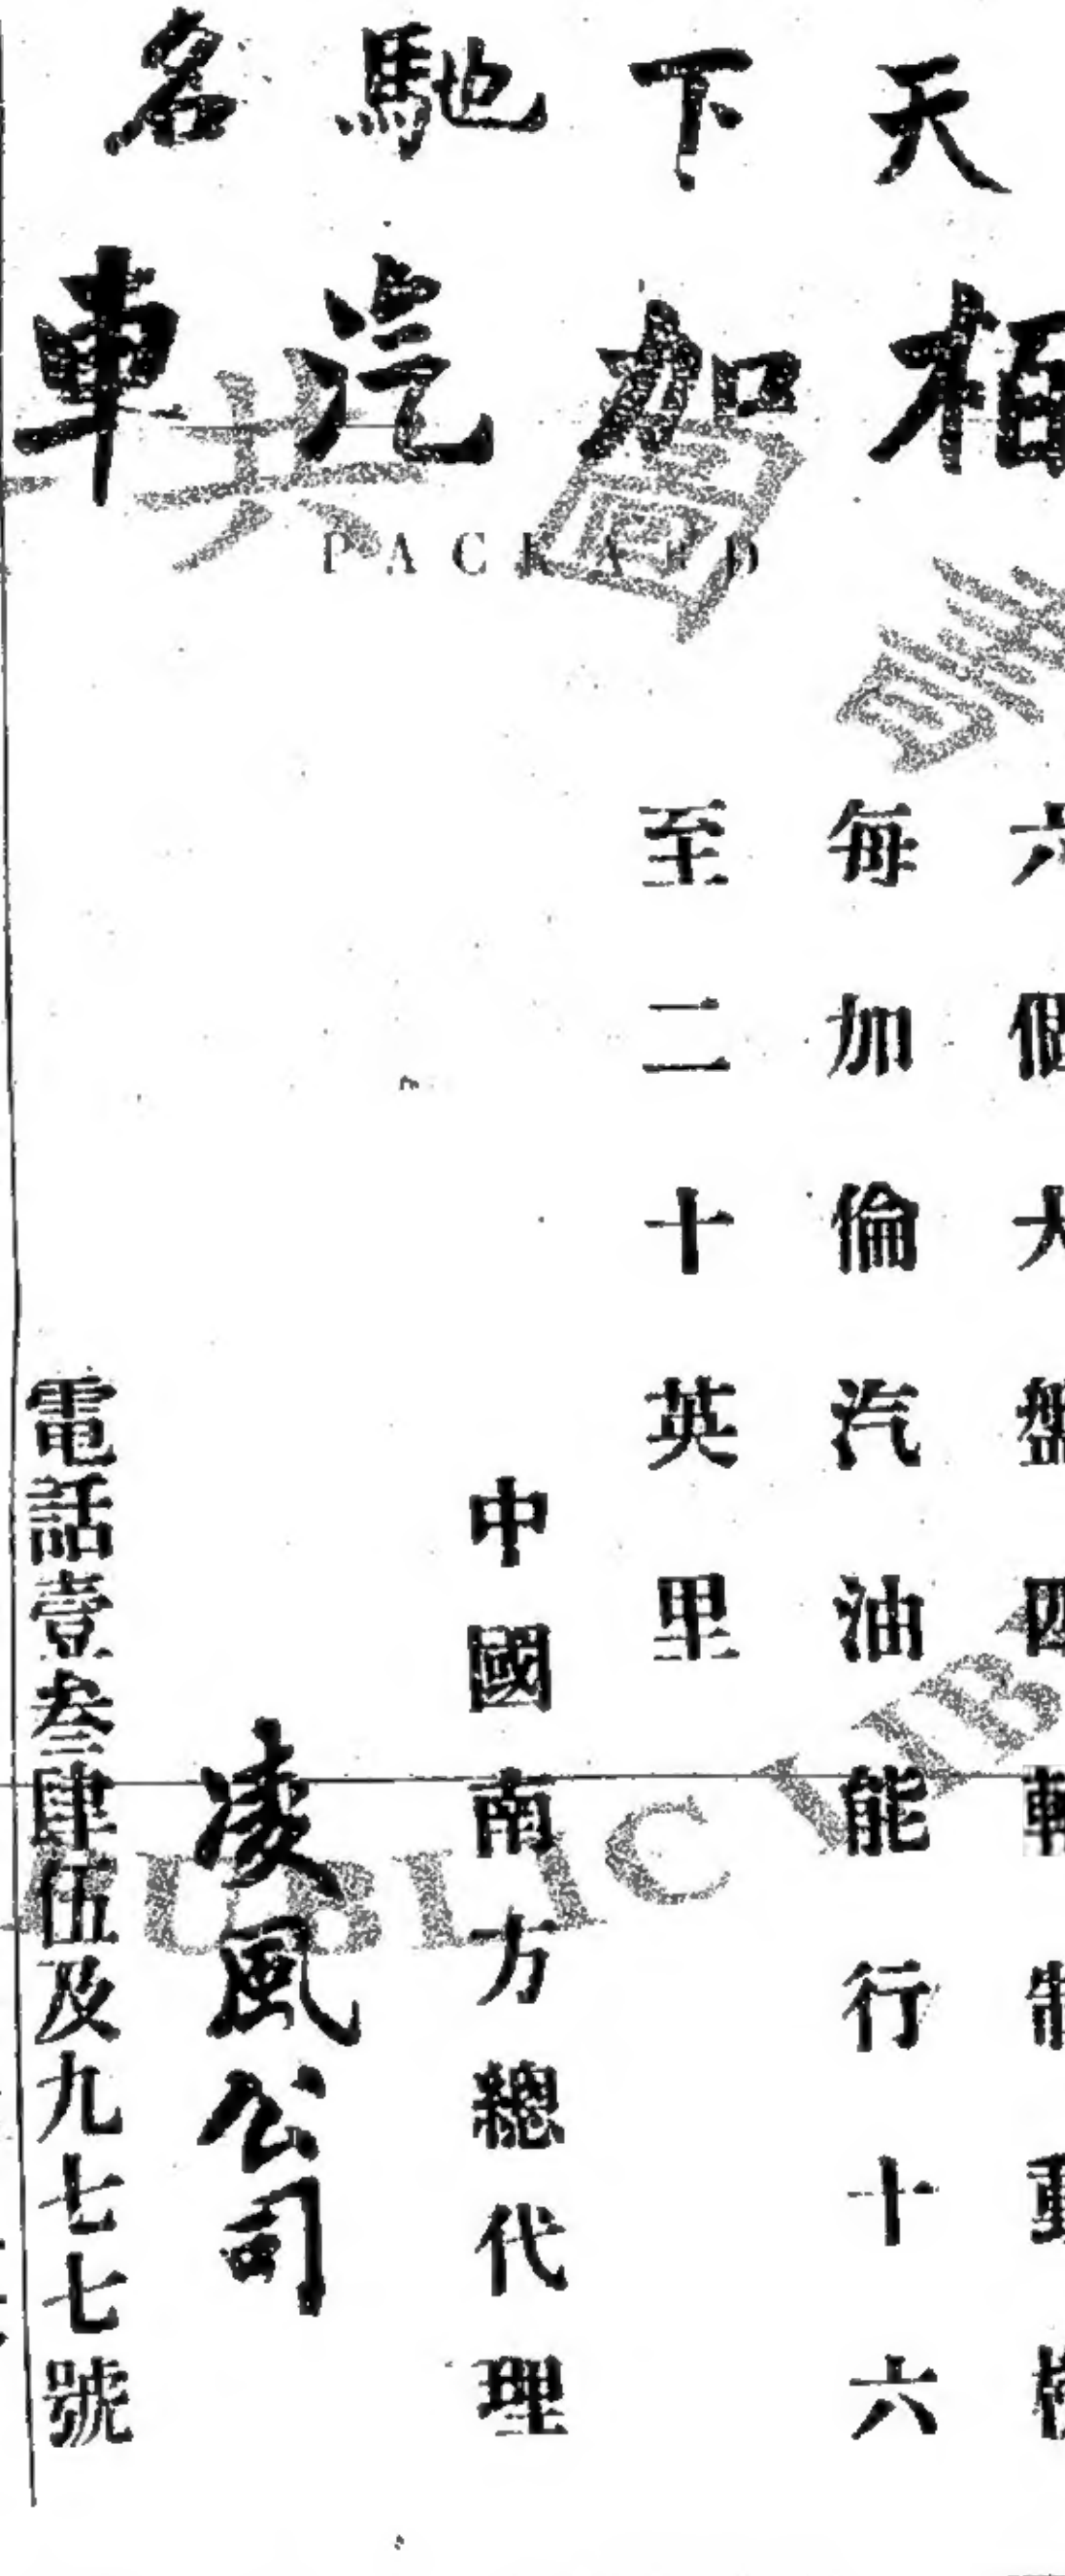 天下馳名
柏加汽車
PACKARD
六個大盤四輛制動機
每加倫汽油能行十六
至二十英里
中國南方總代理
凌風公司
電話壹叁肆伍及九七七號
PUBLIC LIB